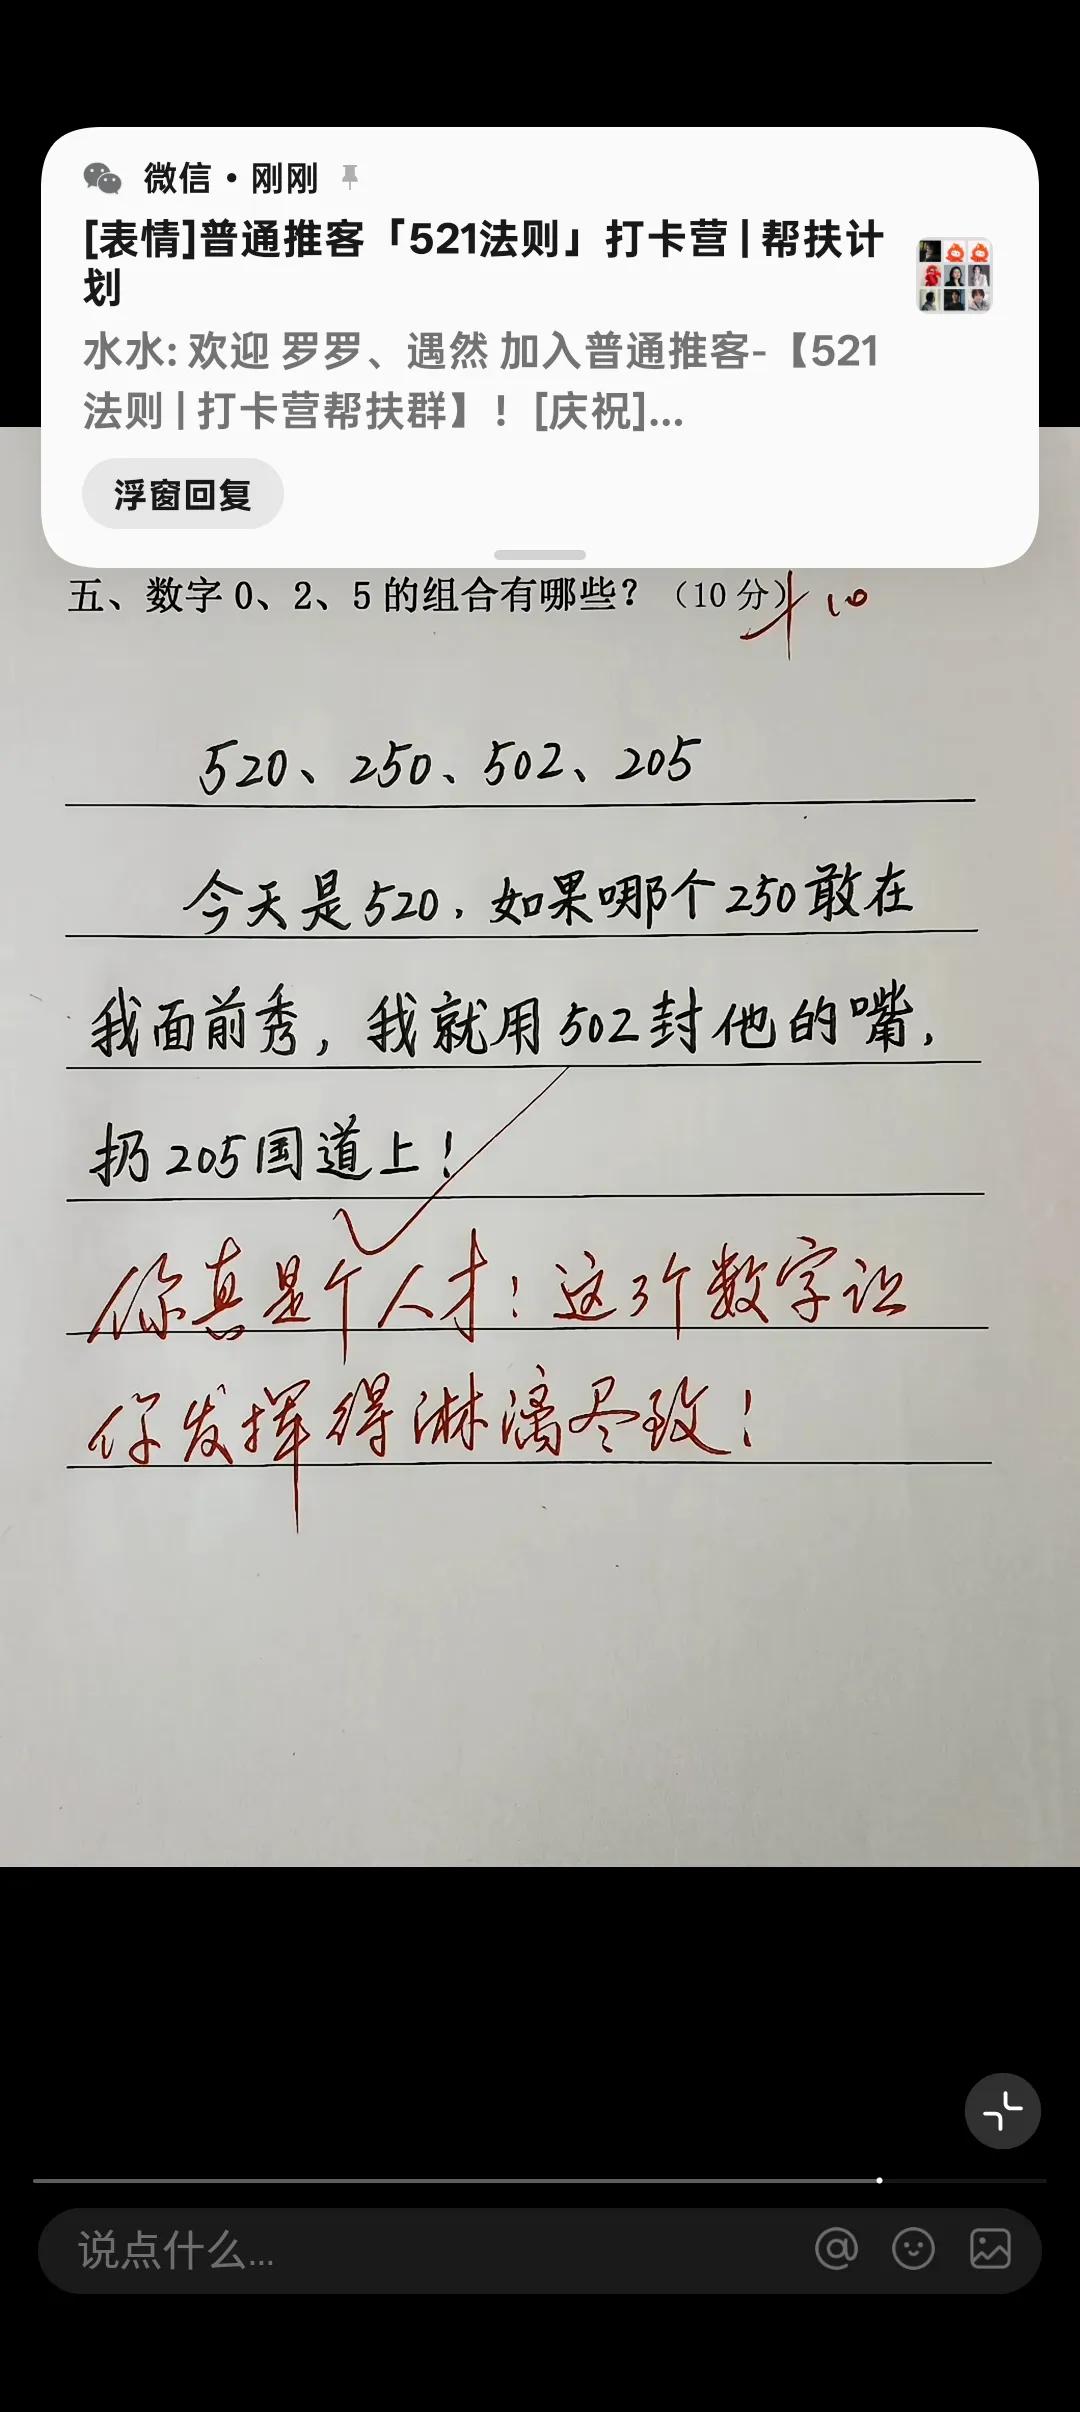 微信 • 刚刚
[表情]普通推客「521法则」打卡营 | 帮扶计
划
水水: 欢迎 罗罗、遇然 加入普通推客-【521
法则 | 打卡营帮扶群】！[庆祝]...
浮窗回复
五、数字 0、2、5 的组合有哪些？（10 分） +10
520、250、502、205
今天是520，如果哪个250敢在
我面前秀，我就用502封他的嘴，
扔205国道上！
你真是个人才！这3个数字让
你发挥得淋漓尽致！
说点什么...